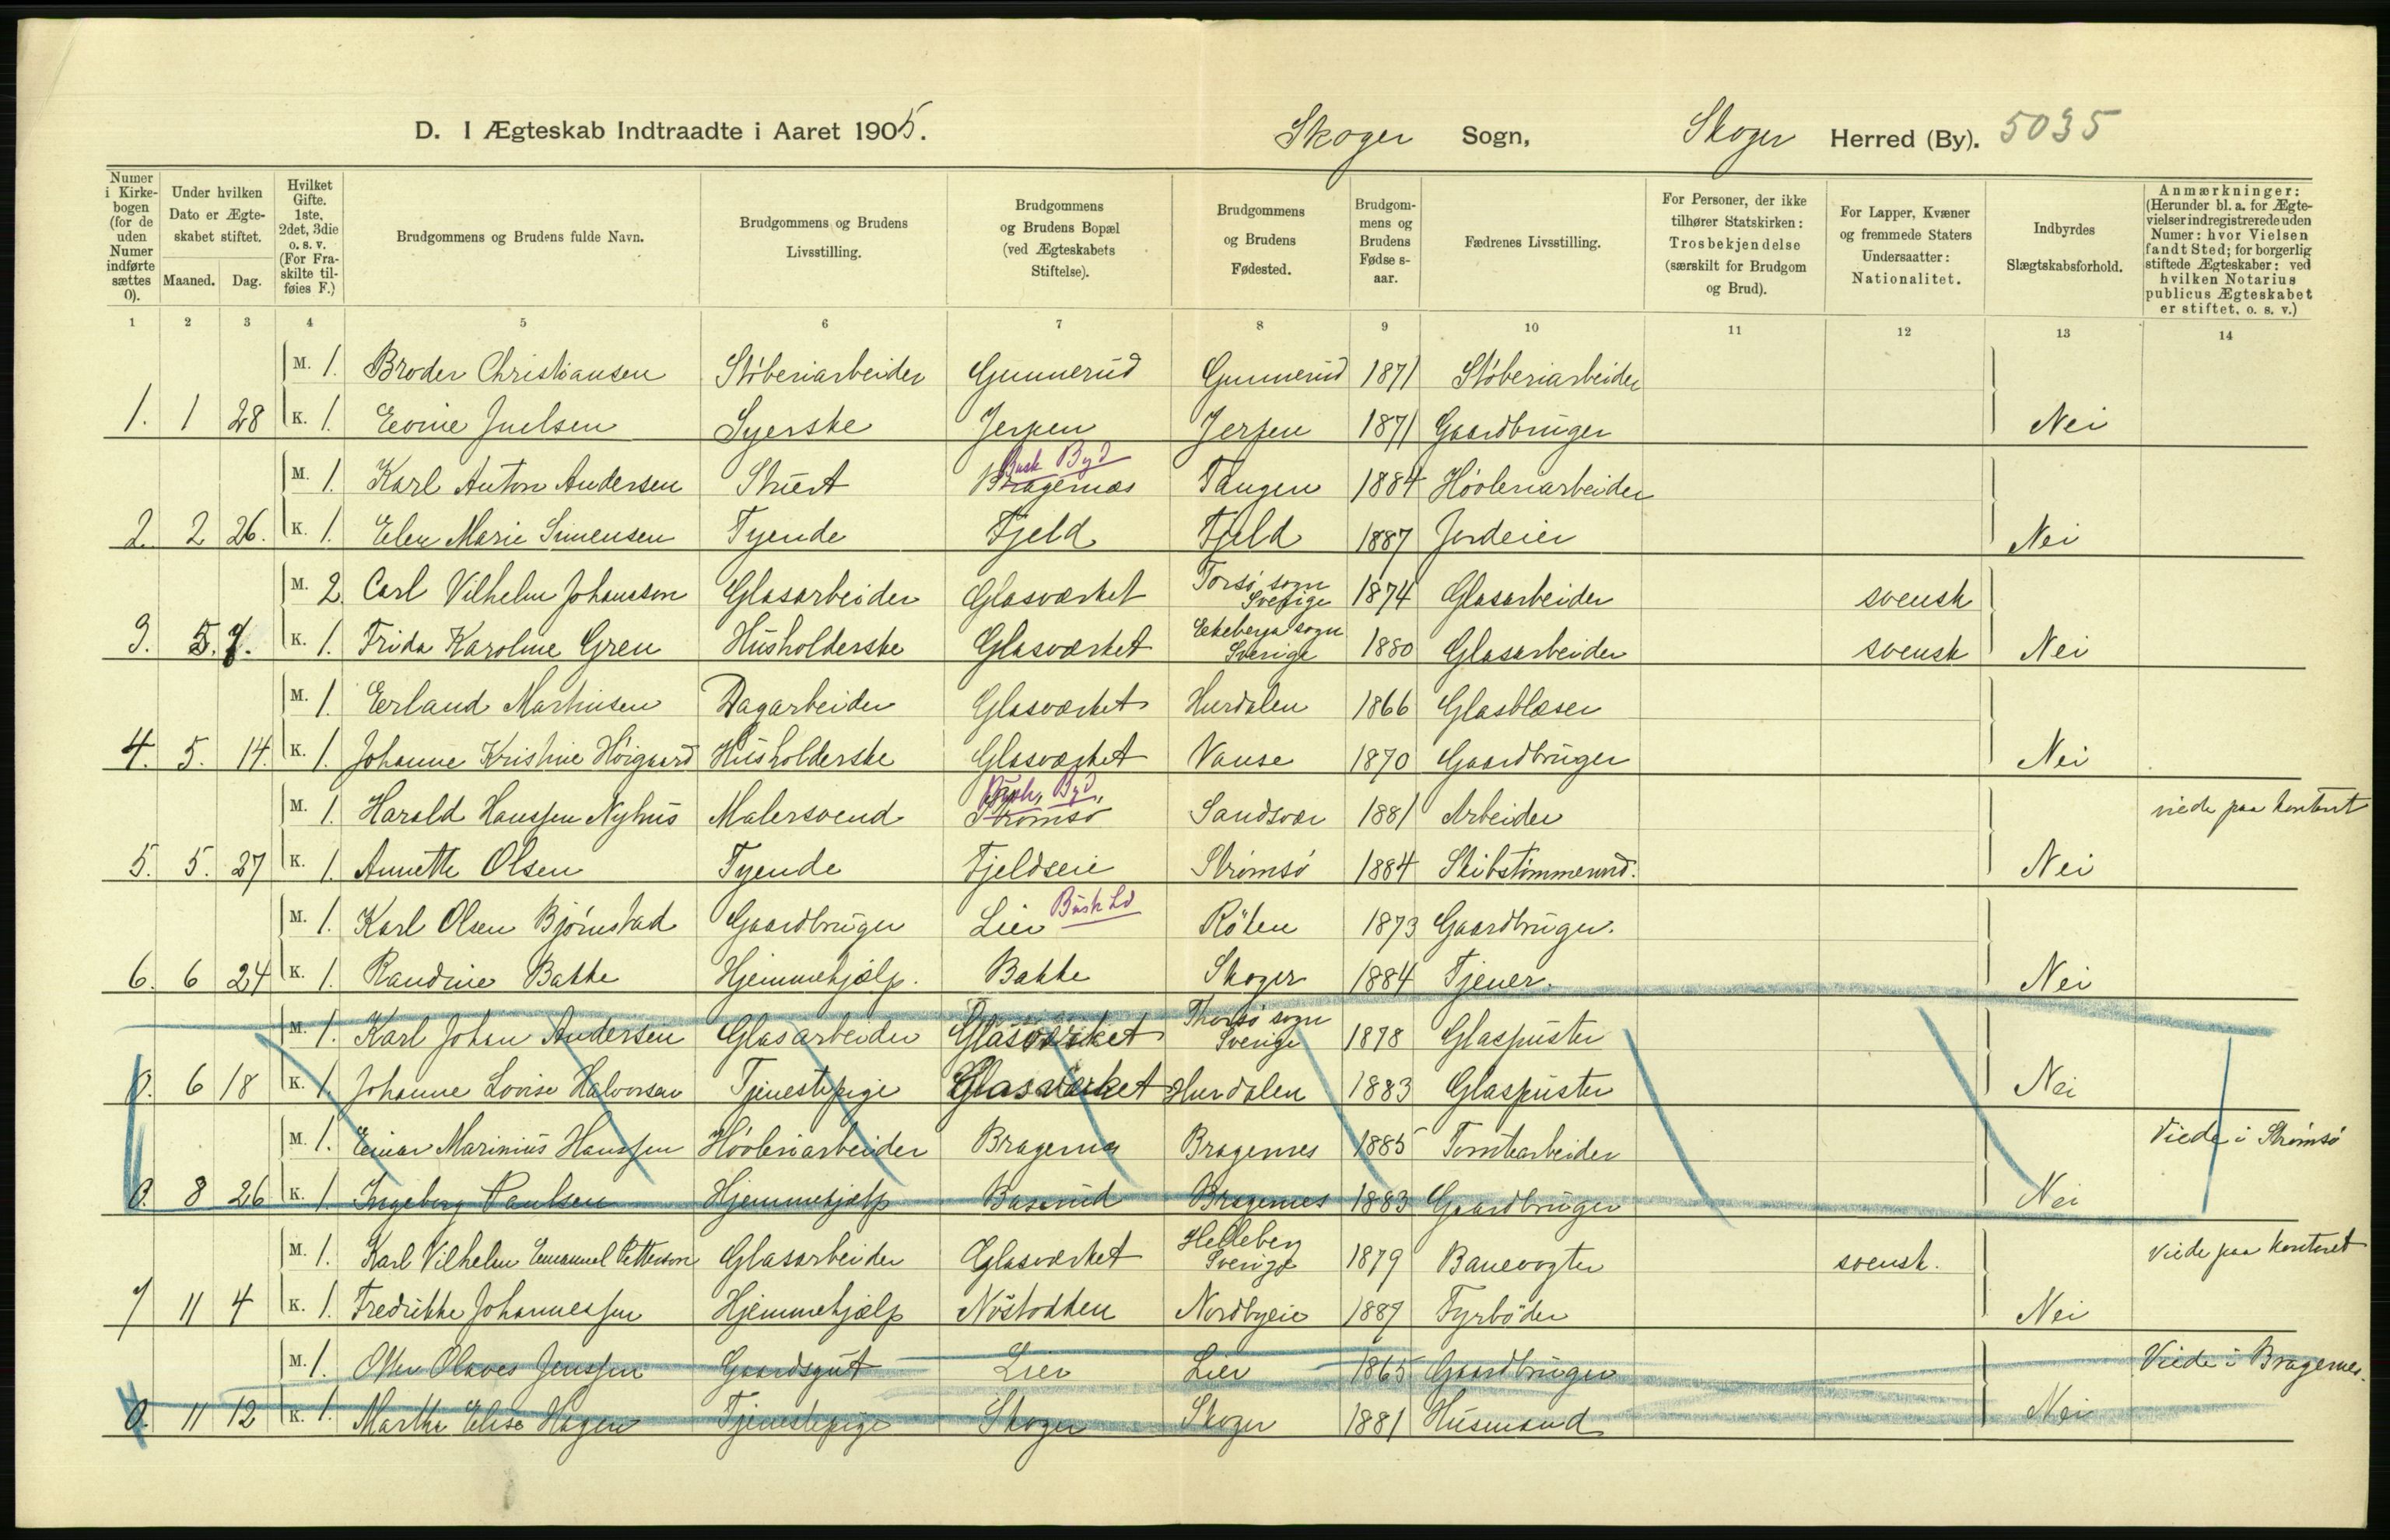 D. I Ægteskab Indtraadte i Aaret 1905. Skoger Sogn, Skoger Herred (By). 5035
Numer i Kirkebogen (for de uden Numer indførte sættes 0). Under hvilken Dato er Ægteskabet stiftet. Maaned. Dag. Hvilket Gifte. 1ste, 2det, 3die o. s. v. (For Fraskilte tilføies F.) Brudgommens og Brudens fulde Navn. Brudgommens og Brudens Livsstilling. Brudgommens og Brudens Bopæl (ved Ægteskabets Stiftelse). Brudgommens og Brudens Fødested. Brudgommens og Brudens Fødselsaar. Fædrenes Livsstilling. For Personer, der ikke tilhører Statskirken: Trosbekjendelse (særskilt for Brudgom og Brud). For Lapper, Kvæner og fremmede Staters Undersaatter: Nationalitet. Indbyrdes Slægtskabsforhold. Anmærkninger: (Herunder bl. a. for Ægtevielser indregistrerede uden Numer: hvor Vielsen fandt Sted; for borgerlig stiftede Ægteskaber: ved hvilken Notarius publicus Ægteskabet er stiftet, o. s. v.)
1 2 3 4 5 6 7 8 9 10 11 12 13 14
M. 1. Broder Christiansen Støberiarbeider Gunnerud Gunnerud 1871 Støberiarbeider
1. 1 28 K. 1. Evine Juelsen Syerske Jerpen Jerpen 1871 Gaardbruger Nei
Busk Byd
M. 1. Karl Anton Andersen Bragernæs Tangen 1884 Høvleriarbeider
2. 2 26. K. 1. Elen Marie Simensen Tyende Fjeld Fjeld 1887 Jordeier Nei
M. 2. Carl Vilhelm Johansson Glasarbeider Glasværket Torsø sogn Sverige 1874 Glasarbeider svensk
3. 5. 7. K. 1. Frida Karoline Gren Husholderske Glasværket Ekeberga sogn Sverige 1880 Glasarbeider svensk Nei
M. 1. Erland Marthinsen Dagarbeider Glasværket Hurdalen 1866 Glasblæser
4. 5. 14. K. 1. Johanne Kristine Høigaard Husholderske Glasværket Vanse 1870 Gaardbruger Nei
Busk. Byd.
M. 1. Harald Hanssen Nyhus Malersvend Strømsø Sandsvær 1881 Arbeider viede paa kontoret
5. 5. 27 K. 1. Annette Olsen Tyende Fjeldseie Strømsø 1884 Skibstømmermd. Nei
M. 1. Karl Olsen Bjørnstad Gaardbruger Lier Busk Ld Røken 1873 Gaardbruger.
6. 6 24 K. 1. Randine Bakke Hjemmehjælp. Bakke Skoger 1884 Tjener. Nei
M. 1. Karl Johan Andersen Glasarbeider Glasværket Thorsø sogn Sverige 1878 Glaspuster
0. 6 18 K. 1 Johanne Lovise Halvorsen Tjenestepige Glasværket Hurdalen 1883 Glaspuster Nei
M. 1. Einar Marinius Hanssen Høvleriarbeider Bragernes Bragernes 1885 Tomtearbeider Viede i Strømsø
0. 8 26 K. 1 Ingeborg Paulsen Hjemmehjælp Baserud Bragernes 1883 Gaardbruger Nei
M. 1. Karl Vilhelm Emanuel Petterson Glasarbeider Glasværket Helleberg Sverige 1879 Banevogter svensk. Viede paa kontoret
7 11 4 K. 1. Fredrikke Johannessen Hjemmehjælp Nøstodden Nordbyeie 1887 Fyrbøder Nei
M. 1. Olaves Jenssen Gaardsgut Lier Lier 1865 Gaardbruger Viede i Bragernes.
0. 11 12 K. 1. Marthe Elise Hagen Tjenestepige Skoger Skoger 1881 Husmand Nei